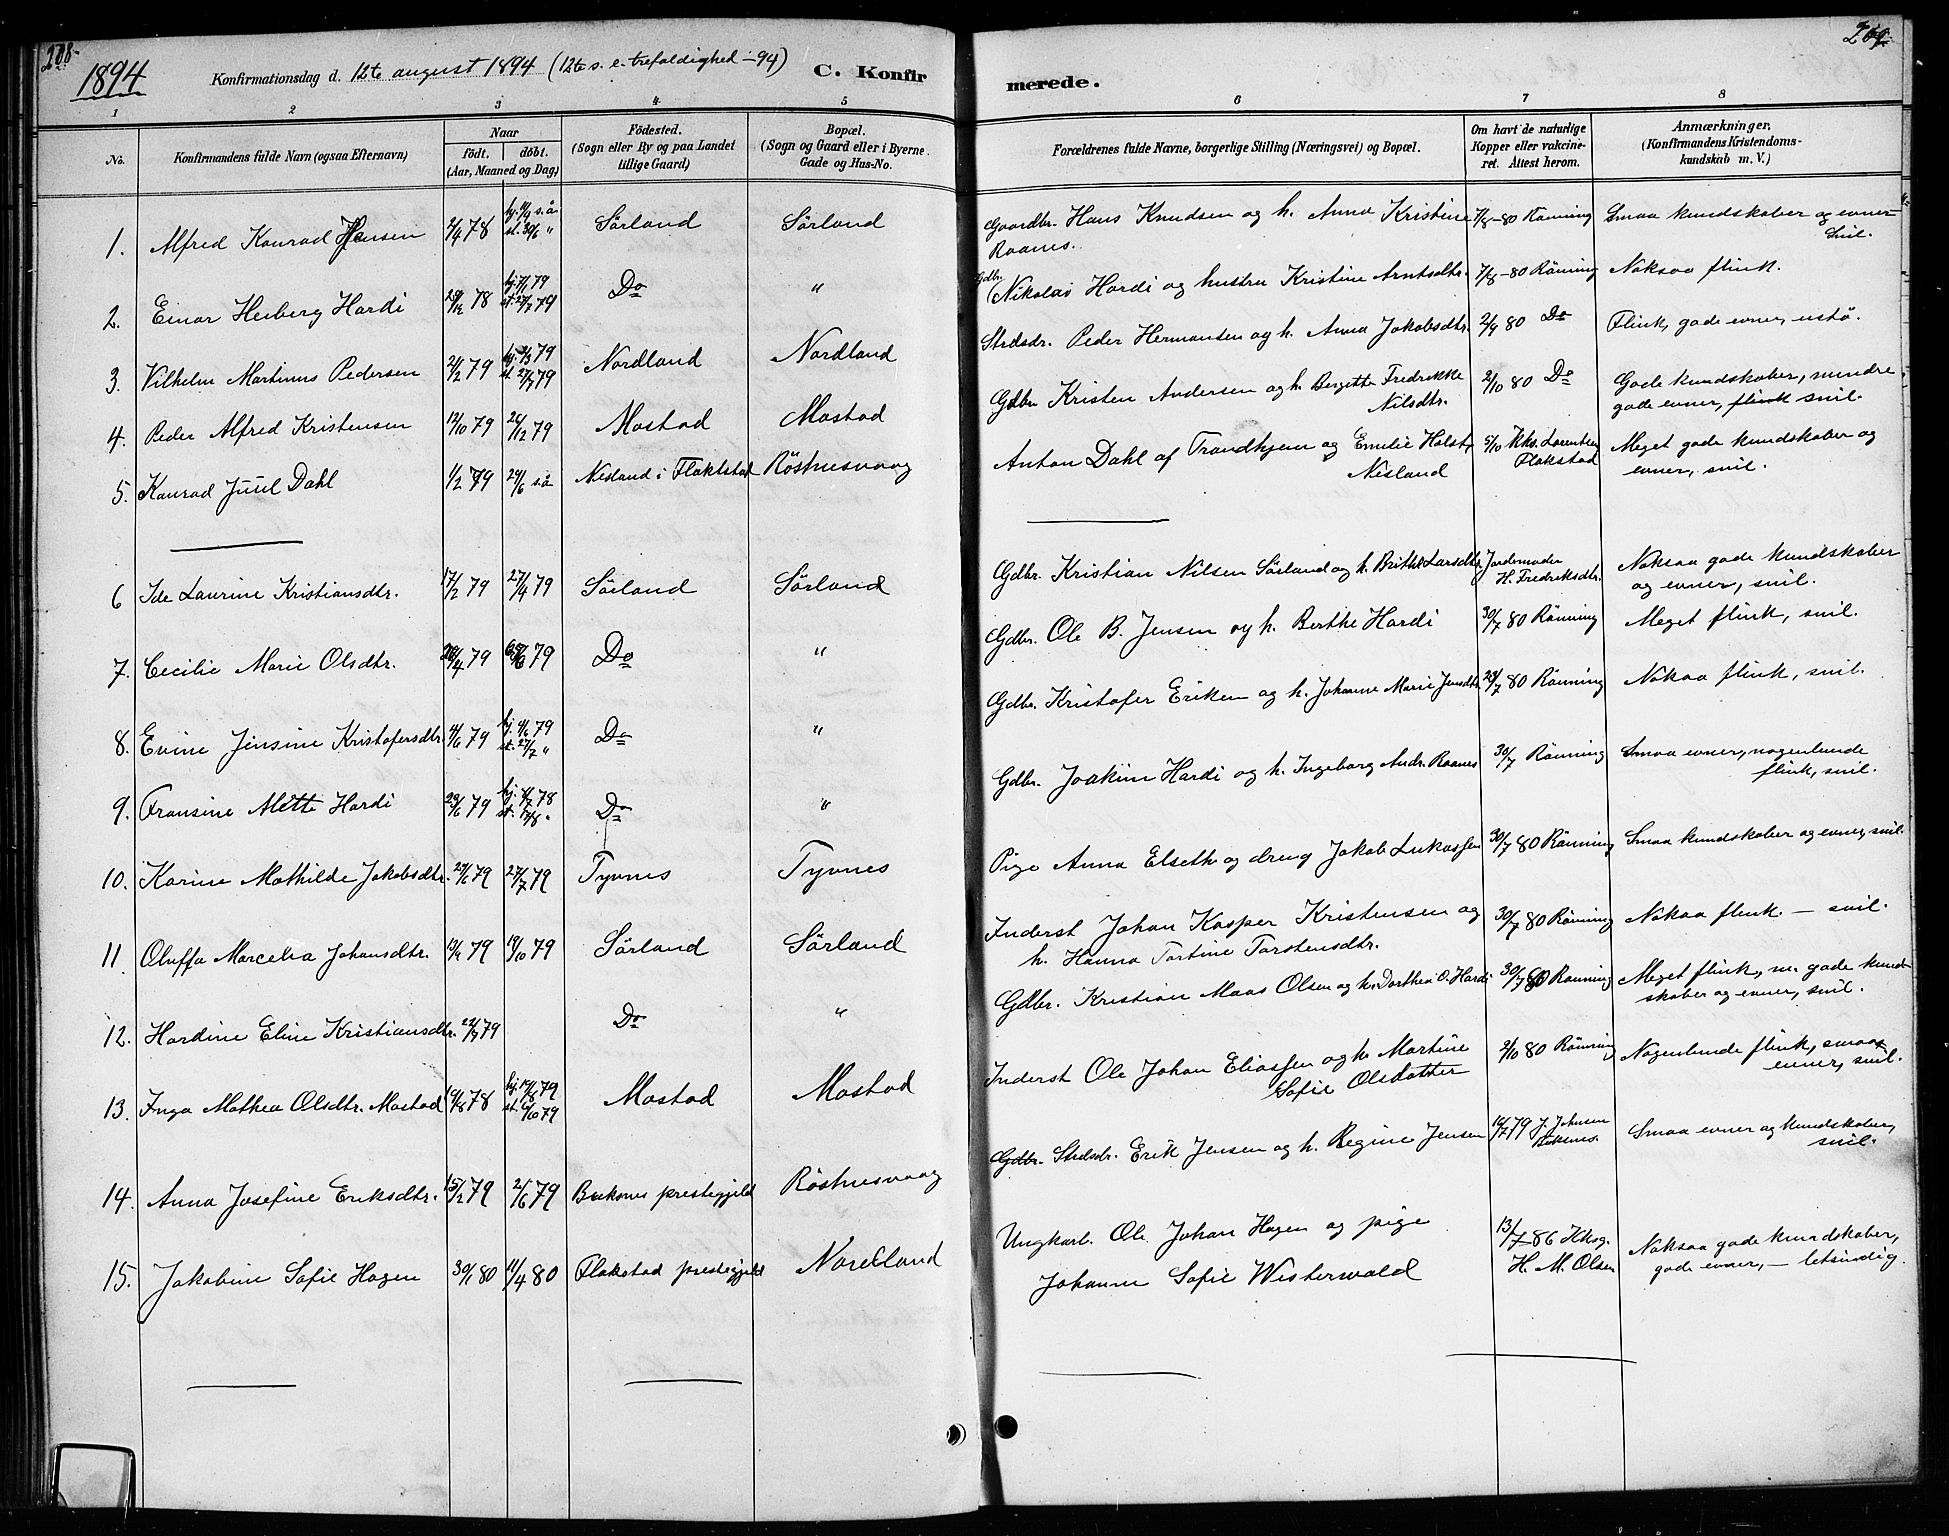 208
1894
Konfirmationsdag d. 12te august 1894 (12te s. e. trefoldighed -94)
C. Konfir
1 2 3 4 5
No.
Konfirmandens fulde Navn (ogsaa Efternavn)
Naar
födt. döbt.
(Aar, Maaned og Dag)
Födested.
(Sogn eller By og paa Landet
tillige Gaard)
Bopæl.
(Sogn og Gaard eller i Byerne
Gade og Hus-No.
1. Alfred Konrad Hansen 2/4 78 hj. 11/4 s.å. Sörland Sörland
st. 30/6 "
2. Einar Heiberg Hardi 28/12 78 hj. 1/1 79 Do "
st. 27/7 79
3. Vilhelm Martinus Pedersen 21/2 79 hj. 2/3 79 Nordland Nordland
st. 27/7 79
4. Peder Alfred Kristensen 12/10 79 26/12 79 Mostad Mostad
5. Konrad Juul Dahl 1/2 79 24/6 s.å Nesland i Flakstad Rösthusvaag
6 Ida Laurine Kristiansdtr. 17/2 79 27/4 79 Sörland Sörland
7. Cecilie Marie Olsdtr. 79 79 Do "
8. Evine Jensine Kristofersdtr. 4/6 79 hj. 4/6 79 Do "
st. 27/7 "
9. Fransine Alette Hardi 29/6 79 hj. 4/7 78 Do "
10. Karine Mathilde Jakobsdtr. 29/6 79 27/7 79 Tyvnes Tyvnes
11. Oluffa Marcelia Johansdtr. 79 19/10 79 Sörland Sörland
12. Hardine Eline Kristiansdtr. 79 Do "
13. Inga Mathea Olsdtr. Mostad 78 hj. 79 Mostad Mostad
st. 79
14. Anna Josefine Eriksdtr. 15/2 79 2/6 79 Buksnes prestegjeld Rösthusvaag
15. Jakobine Sofie Hagen 30/1 80 11/4 80 Flakstad prestegjeld Nordland
209
merede.
6 7 8
Forældrenes fulde Navne, borgerlige Stilling (Næringsvei) og Bopæl.
Om havt de naturlige
Kopper eller vakcine-
ret. Attest herom.
Anmærkninger.
(Konfirmandens Kristendoms-
kundskab m. V.)
Gaardbr. Hans Knudsen og h. Anna Kristine 7/8-80 Rönning Smaa kundskaber og evner
Raanes. snil.
Gdbr. Nikolai Hardi og hustru Kristine Arntsdtr. 7/8-80 Rönning Noksaa flink.
Strdsdr. Peder Hermansen og h. Anna Jakobsdtr. 2/9 80 Do Flink, gode evner, ustö.
Gdbr Kristen Andersen og h. Bergitte Fredrikke 2/10 80 Do Gode kundskaber, mindre
Nilsdtr. gode evner, flink snil.
Anton Dahl af Trondhjem og Emilie Holst, 5/10 Kks. Lorentzen Meget gode kundskaber og
Nesland Flakstad evner, snil.
Gdbr. Kristian Nilsen Sörland og h. Brithe Larsdtr. Jordemoder Noksaa gode kundskaber
H. Fredriksdtr. og evner, snil.
Gdbr. Ole B. Jensen og h. Berthe Hardi 30/7 80 Rönning Meget flink, snil.
Gdbr. Kristofer Eriksen og h. Johanne Marie Jensdtr 28/7 80 Rönning Noksaa flink, snil.
Gdbr. Joakim Hardi og h. Ingeborg Andr. Raanes 30/7 Rönning Smaa evner, nogenlunde
flink, snil.
Pige Anna Elseth og dreng Jakob Lukassen 30/7 80 Rönning Smaa kundskaber og evner, snil.
Inderst Johan Kasper Kristensen og 30/7 80 Rönning Noksaa flink. – snil.
h. Hanna Tortine Torstensdtr.
Gdbr. Kristian Maas Olsen og h. Dorthea O. Hardi 30/7 80 Rönning Meget flink, m. gode kund-
skaber og evner, snil.
Inderst Ole Johan Eliassen og h. Martine 2/10 80 Rönning Nogenlunde flink, smaa
Sofie Olsdatter evner, snil.
Gdbr. Strdsdr. Erik Jensen og h. Regine Jensen 79 J. Johnsen Smaa evner og kundskaber,
Buksnes. snil.
Ungkarl. Ole Johan Hagen og pige 13/7-86 Kksg. Noksaa gode kundskaber,
Johanne Sofie Westerwald H. M. Olsen gode evner, – letsindig.